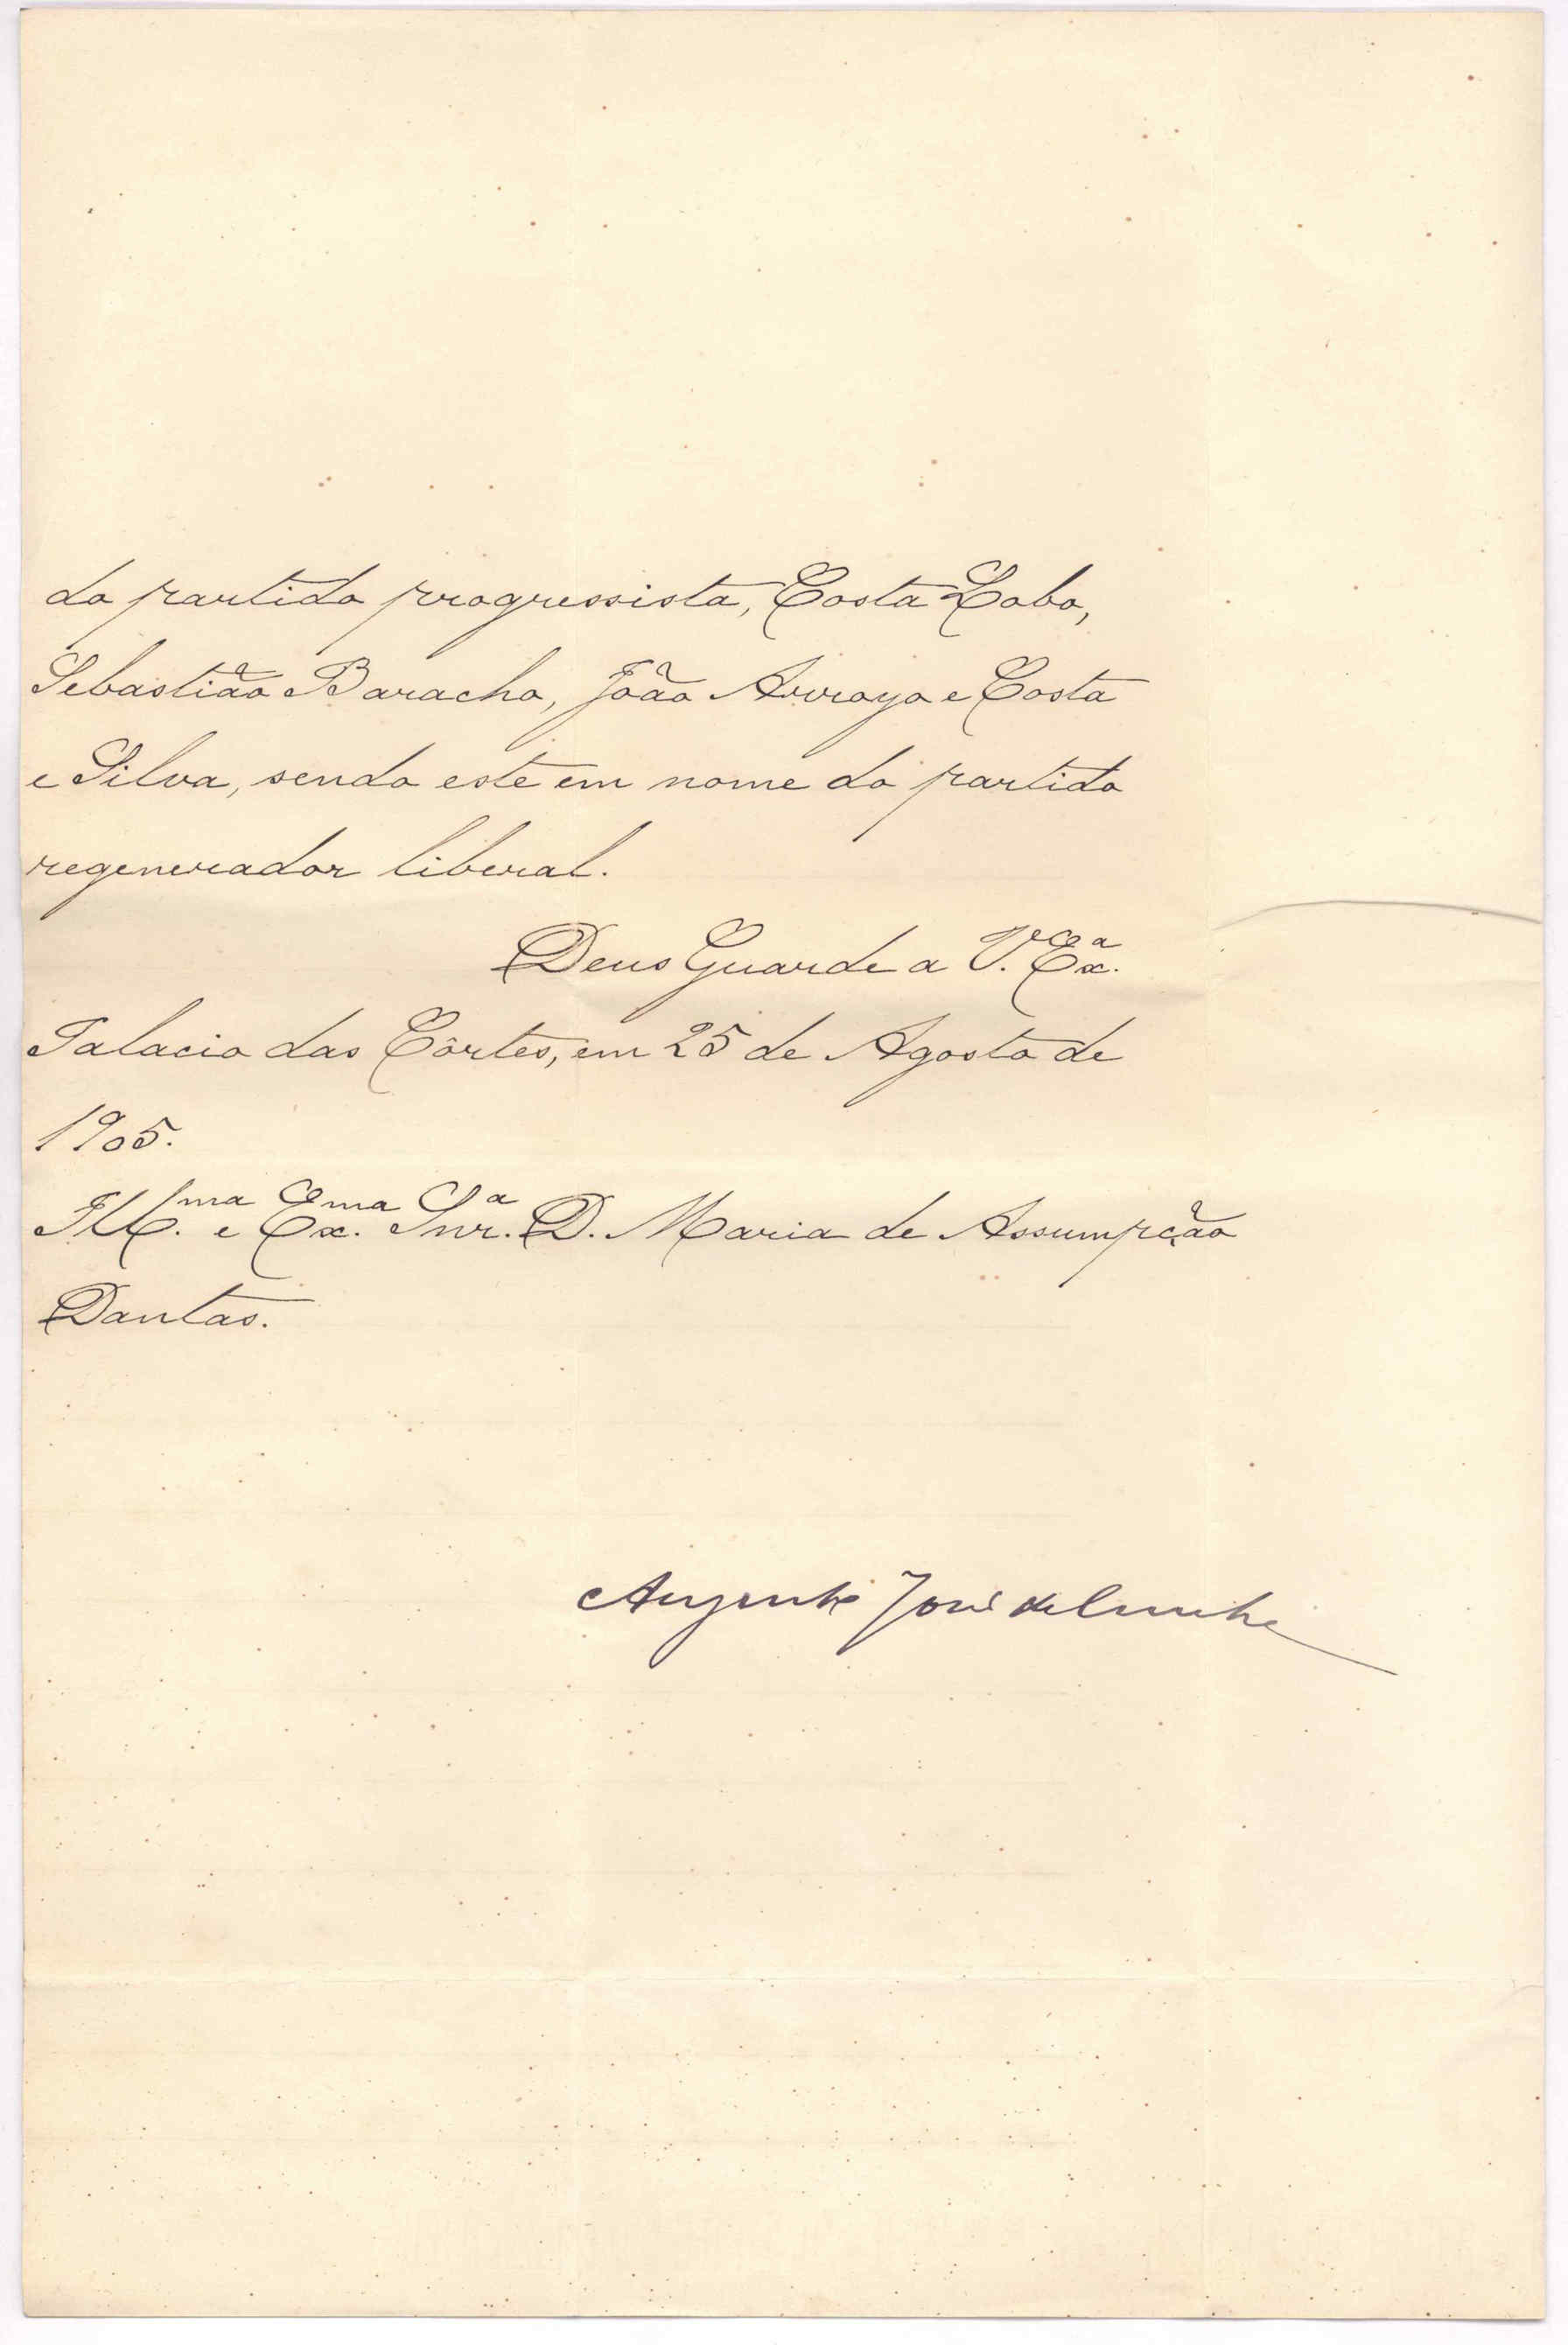 do partido progressista, Costa Lobo,
Sebastião Baracho, João Arroyo e Costa
e Silva, sendo este em nome do partido
regenerador liberal.
Deus Guarde a V. Exª.
Palacio das Côrtes, em 25 de Agosto de
1905.
Ill.ma e Ex.ma Snr.ª D. Maria de Assumpção
Dantas.
Augusto José da Cunha